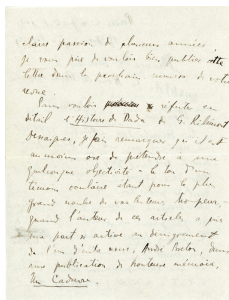 passion de plusieurs années,
je vous prie de vouloir bien publier cette
lettre dans le prochain numéro de votre
revue.
Sans vouloir réfuter en
détail l'Histoire de Dada de G. Ribemont
Dessaignes, je fais remarquer qu'il est
au moins osé de prétendre à une
quelconque objectivité
témoin oculaire étant pour le plus
grand nombre de vos lecteurs
quand l'auteur de ces articles a pris
une part active au dénigrement
de l'un d'entre nous, André Breton, dans
une publication de honteuse mémoire,
Un Cadavre.